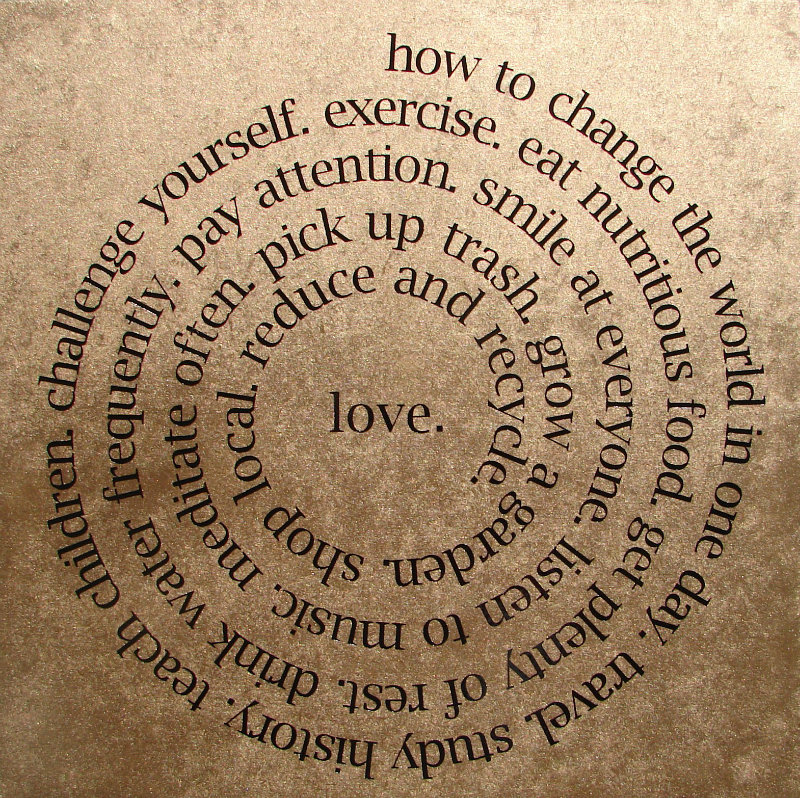 how to change the world in one day. travel. study history. teach children. challenge yourself. exercise. eat nutritious food. get plenty of rest. drink water frequently. pay attention. smile at everyone. listen to music. meditate often. pick up trash. grow a garden. shop local. reduce and recycle.
love.